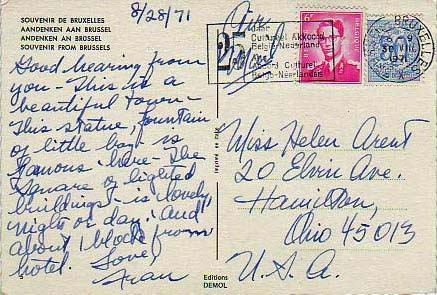 SOUVENIR DE BRUXELLES
AANDENKEN AAN BRUSSEL
ANDENKEN AN BROSSEL
SOUVENIR FROM BRUSSELS
8/28/71
Good hearing from
you - This is a
beautiful town -
This statue, fountain
of little boy is
famous here - The
Square of lighted
buildings - is lovely
night or day! And
about 1 block from
hotel. Love,
Fran
5
Editions
DEMOL
Imprimé en Italie
Air
Mail
25
jaar
Cultureel Akkoord
België-Nederland
Accord Culturel
Belgo-Néerlandais
6F
BELGIQUE
BRUXELLES
30 VIII
1971
Miss Helen Arent
20 Elvin Ave.
Hamilton,
Ohio 45013
U.S.A.